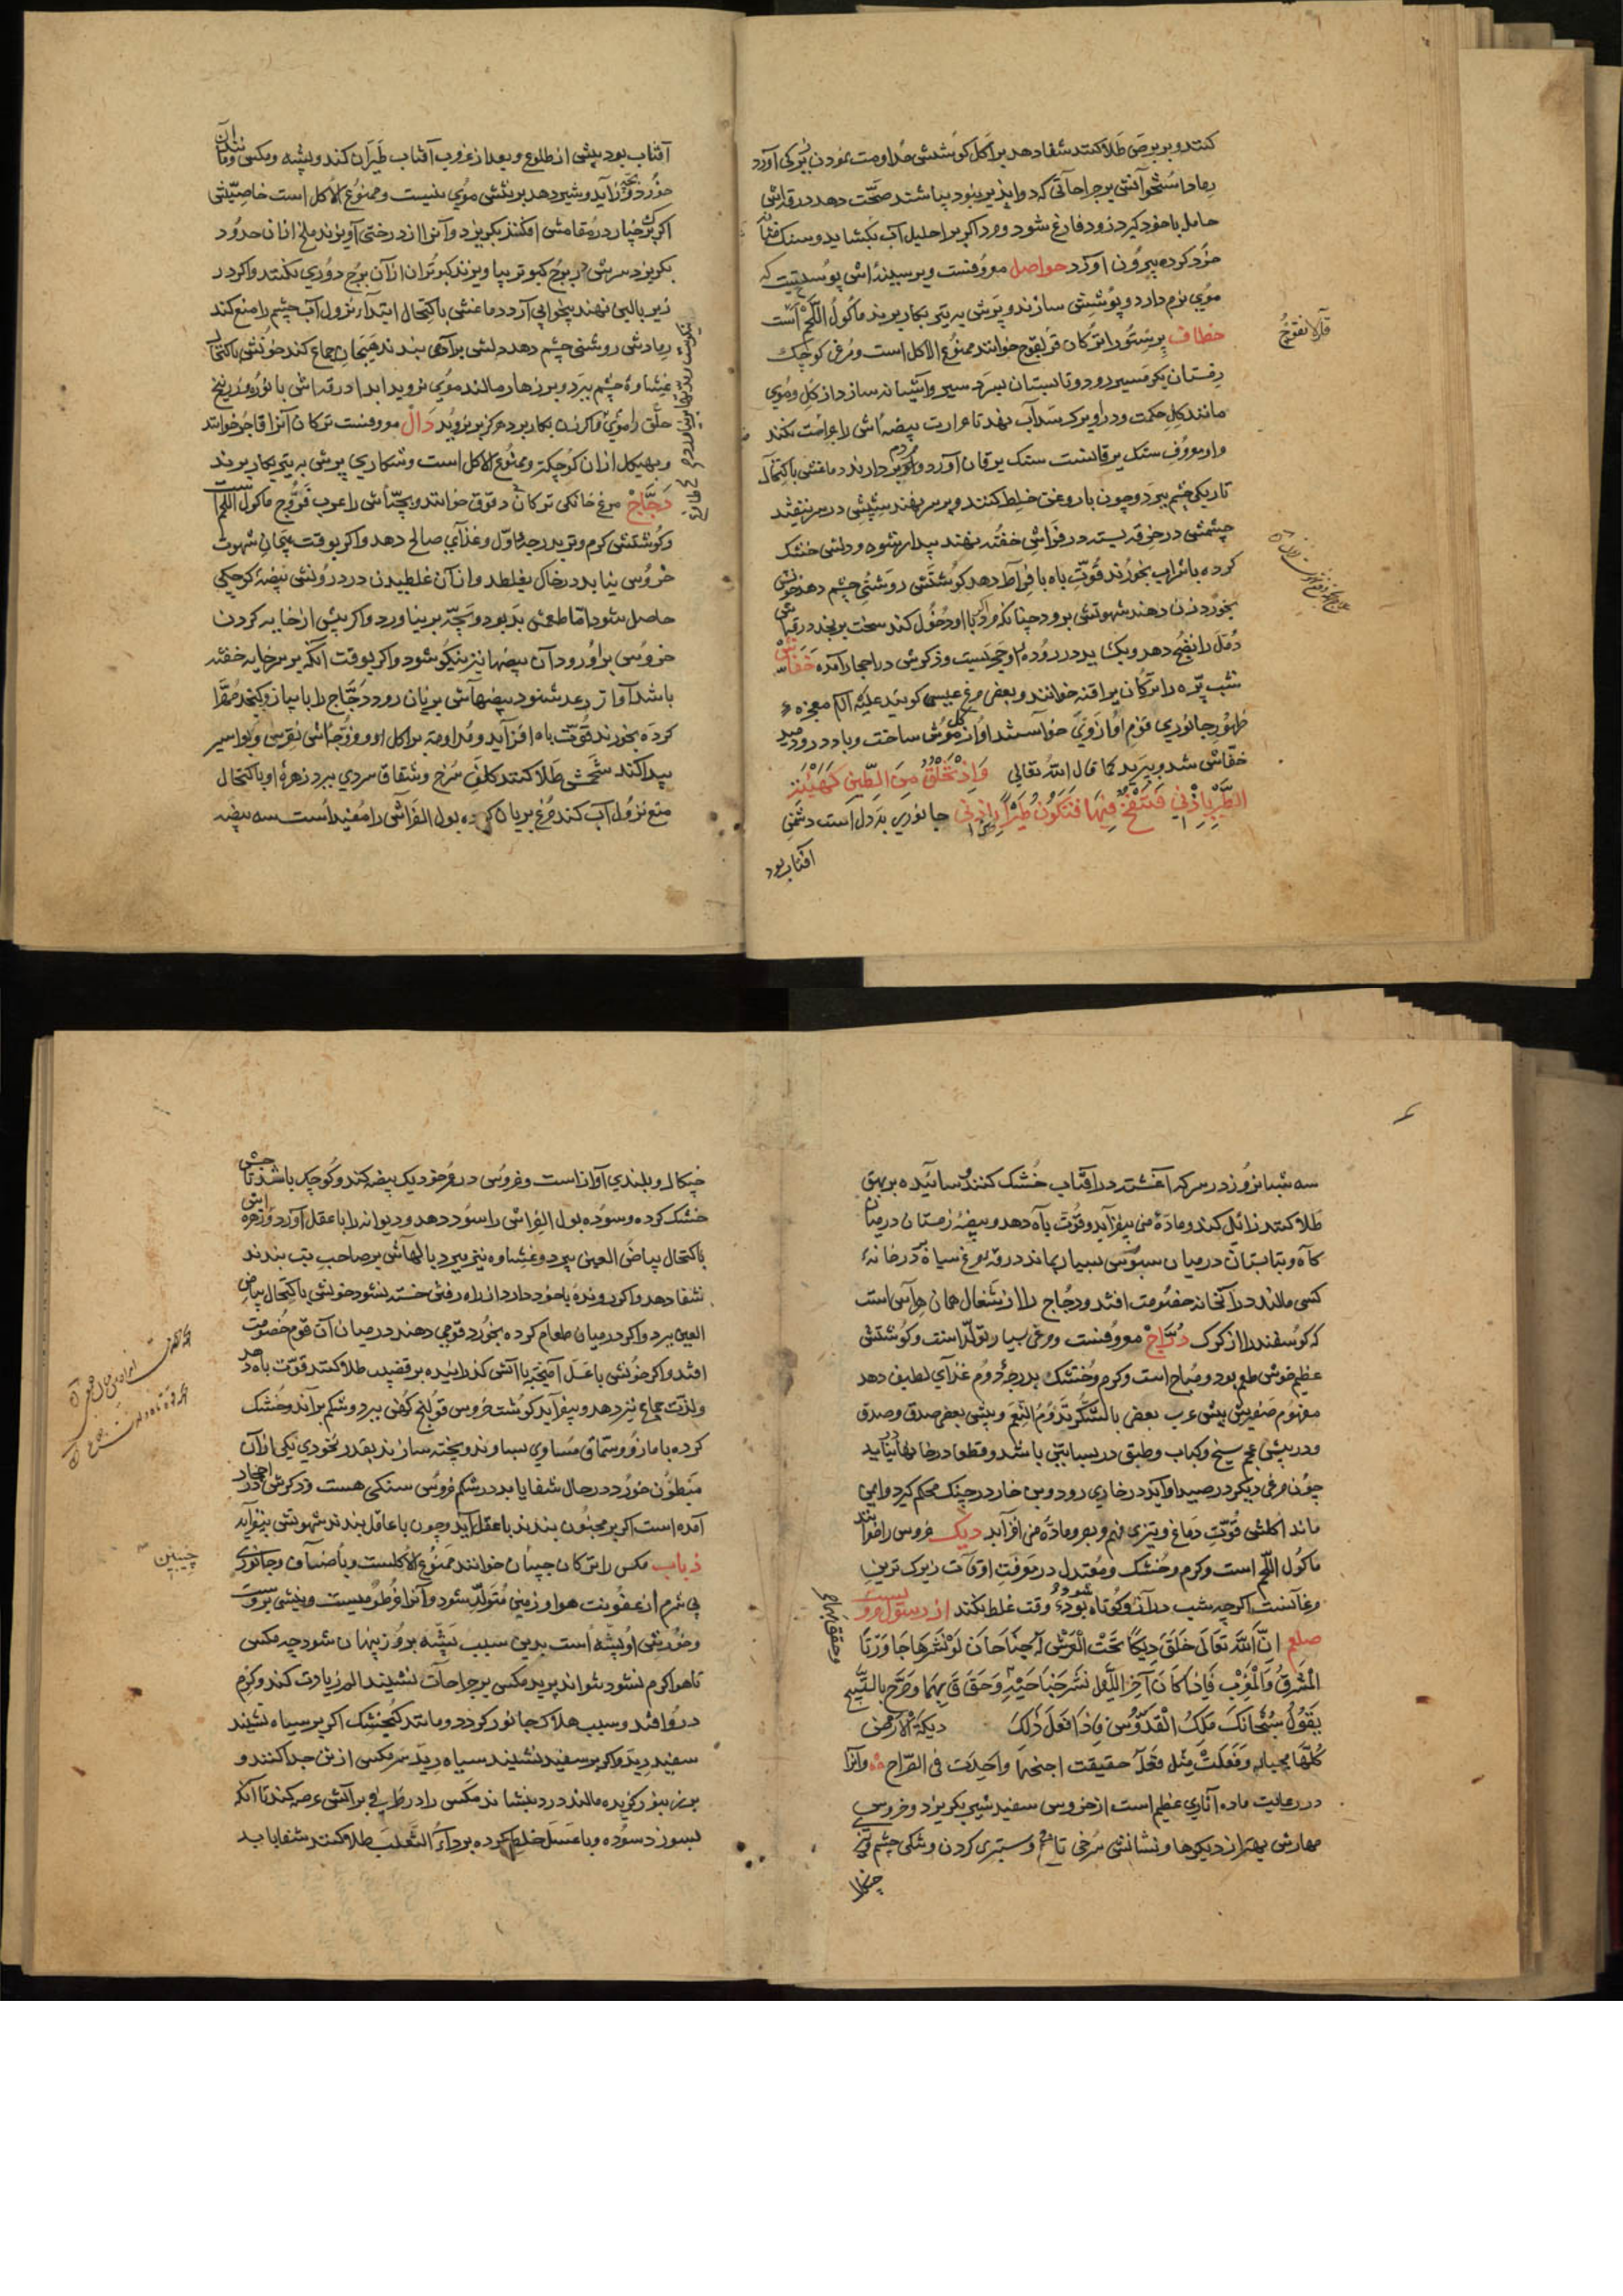 کنند و بر برص طلا کنند شفا دهد بر اکل کوشتش مداومت نمودن بزرکی آورد
رماد استخوانش بر جراحاتی که دوا پذیر نبود بپاشند صحت دهد در قداش
حامل با خود کیرد زود فارغ شود و مرد اکر بر احلیل آب بکشاید و سنک مثانه
خورد کرده بیرون آورد حواصل معروفست و بر سینه اش پوستیست که
موی نرم دارد و پوستین سازند و پرش به تیر بکار برند ماکول اللحم است
خطاف پرستو را ترکان قرلغوج خوانند ممنوع الاکل است و مرغی کوچک
زمستان بکرمسیر رود و تابستان بسردسیر و آشیانه سازد از کل و موی
مانند کل حکمت و در او برک سداب نهد تا حرارت بیضه اش را مضرت نکند
و او معروف سنک یرقانست سنک یرقان آورد و مردم بردارند دماغش باکتحال
تاریکی چشم ببرد و چون با روغن خلط کنند و بر سر نهند شپش در سر نیفتد
چشمش در خرقه بسته در فراش خفته نهند بیدار نشود و دلش خشک
کرده با شراب بخورند قوت باه بافراط دهد کوشتش روشنی چشم دهد خونش
بخورد زن دهند شهوتش برود چنانکه مرد با او دخول کند سخت برنجد
دمل را نضج دهد و یک بد در روده او حجریست و ذکرش در احجار آمده خفاش
شب پره را ترکان یراقنه خوانند و بعضی مرغ عیسی کویند علیه السلام معجزه
ظهور جانوری قوم او از وی خواستند او از کل موش ساخت و باد در او دمید
خفاش شد و بپرید کما قال الله تعالی وَاِذْ تَخْلُقُ مِنَ الطِّینِ کَهَیْئَةِ
الطَّیْرِ بِاِذْنِی فَتَنْفُخُ فِیهَا فَتَکُونُ طَیْراً بِاِذْنِی جانوری بد دل است دشمن
آفتاب بود
قرلانقوج
آفتاب بود پیش از طلوع و بعد از غروب آفتاب طیران کند و پشه و مکس و مانند آن
خورد و بچه زاید و شیر دهد بر تنش موی نیست و ممنوع الاکل است خاصیتش
اکر برک چنار در مقامش افکنند بکریزد و آنرا از درختی آویزند ملخ از آن حدود
بکریزد سرش در برج کبوتر بیاویزند کبوتران از آن برج دوری نکنند و اکر در
زیر بالین نهند بیخوابی آرد دماغش باکتحال ابتداء نزول آب چشم را منع کند
رمادش روشنی چشم دهد دلش بر آدمی بندند هیجان جماع کند خونش باکتحال
غشاوهٔ چشم ببرد و بر زهار مالند موی نروید ابدا زرقداش با نوره و زرنیخ
حلق را موی اکر بدن بکار برد هرکز بر نروید دال معروفست ترکان آنرا قاجر خوانند
و بهیکل از آن کوچکتر و ممنوع الاکل است و شکاری پرش به تیر بکار برند
دجاج مرغ خانکی ترکان دقوق خوانند و بچه اش را عرب فروج ماکول اللحم است
و کوشتش کرم و تر بدرجهٔ اول و غذای صالح دهد و اکر بوقت هیجان شهوت
خروس نیابد در خاک بغلطد و از آن غلطیدن در درونش بیضهٔ کوچکی
حاصل شود اما طعمش بد بود و بچه بر نیاورد و اکر پیش از خایه کردن
خروس بر او رود آن بیضها نیز نیکو شود و اکر بوقت آنکه بر سر خایه خفته
باشد آواز رعد شنود بیضهاش بزیان رود دجاج را با پیاز و کنجد مقشر
کرده بخورند قوت باه افزاید و مداومت بر اکل او و زجاش نقرس و بواسیر
پیدا کند شحمش طلا کنند کلف سرخ و شقاق سردی ببرد زهرهٔ او باکتحال
منع نزول آب کند مرغ بریان کرده بول الفراش را مفید است سه بیضه
سه شبانروز در سرکه آغشته در آفتاب خشک کنند و سائیده بر بهق
طلا کنند زائل کند و مادهٔ منی بیفزاید و قوت باه دهد و بیضهٔ زمستان در میان
کاه و تابستان در میان سبوس بسیار بماند زرق مرغ سیاه در خانهٔ
کسی مالند در آنخانه خصومت افتد و دجاج را از شغال همان هراس است
که کوسفند را از کرک دراج معروفست و مرغی بسیار تولد است و کوشتش
عظیم خوش طعم بود و مباح است و کرم و خشک بدرجهٔ دوم غذای لطیف دهد
مفهوم صفیرش پیش عرب بعضی بالشکر تدوم النعم و پیش بعضی صدق و صدق
و در پیش عجم سیخ و کباب و طبق در بیابانی باشد و قطعا در خانها نیاید
چون مرغی دیکر در صید او آید در خاری رود و بن خار در چنک محکم کیرد و ایمن
ماند اکلش قوت دماغ و تیزی فهم و بصر و ماده منی افزاید دیک خروس را خوانند
ماکول اللحم است و کرم و خشک و معتدل در معرفت اوقات زیرک ترین
مرغانست اکر چه شب دراز و کوتاه شود وقت غلط نکند از رسول مرویست
صلعم اِنَّ اللّٰهَ تَعَالَی خَلَقَ دِیکاً تَحْتَ الْعَرْشِ لَهُ جَنَاحَانِ لَوْ نَشَرَهَا جَاوَزَتَا
الْمَشْرِقَ وَالْمَغْرِبَ فَاِذَا کَانَ آخِرُ اللَّیْلِ نَشَرَ جَنَاحَیْهِ وَخَفَقَ بِهِمَا وَصَرَّحَ بِالتَّسْبِیحِ
یَقُولُ سُبْحَانَکَ مَلِکُ الْقُدُّوسُ فَاِذَا فَعَلَ ذٰلِکَ دیکة الارض
کلها وفعلت مثل فعله حقیقت اجنحتها واخذت فی الصراخ و آنرا
در رعایت ماده آثاری عظیم است از خروس سفید شیر بکریزد و خروس
مهارش بهتر از دیکرها و نشانش سرخی تاج و ستبری کردن و تنکی چشم و تیزی
چنکال
چنکال و بلندی آواز است و خروس در عمر خود یک بیضه کند و کوچک باشد تاجش
خشک کرده و سوده بول الفراش را سود دهد و دیوانه را با عقل آورد و زهره اش
باکتحال بیاض العین ببرد و غشاوه نیز ببرد بالهاش بر صاحب تب بندند
شفا دهد و اکر رونده با خود دارد از راه رفتن خسته نشود خونش باکتحال بیاض
العین ببرد و اکر در میان طعام کرده بخورد قومی دهند در میان آن قوم خصومت
افتد و اکر خونش با عسل آمیخته با آتش کذرانیده بر قضیب طلا کنند قوت باه دهد
و لذت جماع نیز دهد و بیفزاید کوشت خروس قولنج کهن ببرد و شکم براند و خشک
کرده با مازو و سماق مساوی بساوند و پخته سازند بقدر نخودی یکی از آن
مبطون خورد در حال شفا یابد در شکم خروس سنکی هست و ذکرش در احجار
آمده است اکر بر مجنون بندند با عقل آید و چون با عاقل بندند شهوتش بیفزاید
ذباب مکس را ترکان چیبان خوانند ممنوع الاکلست و باصناف و جانوری
بی شرم از عفونت هوا و زمین متولد شود و آنرا خرطومیست و نیشی بر وست
و خورش او پشه است بدین سبب پشه بروز پنهان شود چه مکس
تا هوا کرم نشود نتواند پرید مکس بر جراحات نشیند الم زیادت کند و کرم
درو افتد و سبب هلاک جانور کردد و مانند کنجشک اکر بر سیاه نشیند
سفید ریند و اکر بر سفید نشیند سیاه رید سر مکس از تن جدا کنند و
بر زنبور کزیده مالند درد بنشاند مکس را در ظرفی بر آتش عرضه کنند تا آنکه
بسوزد سوده و با عسل خلط کرده بر داء الثعلب طلا کنند شفا یابد
چیبین